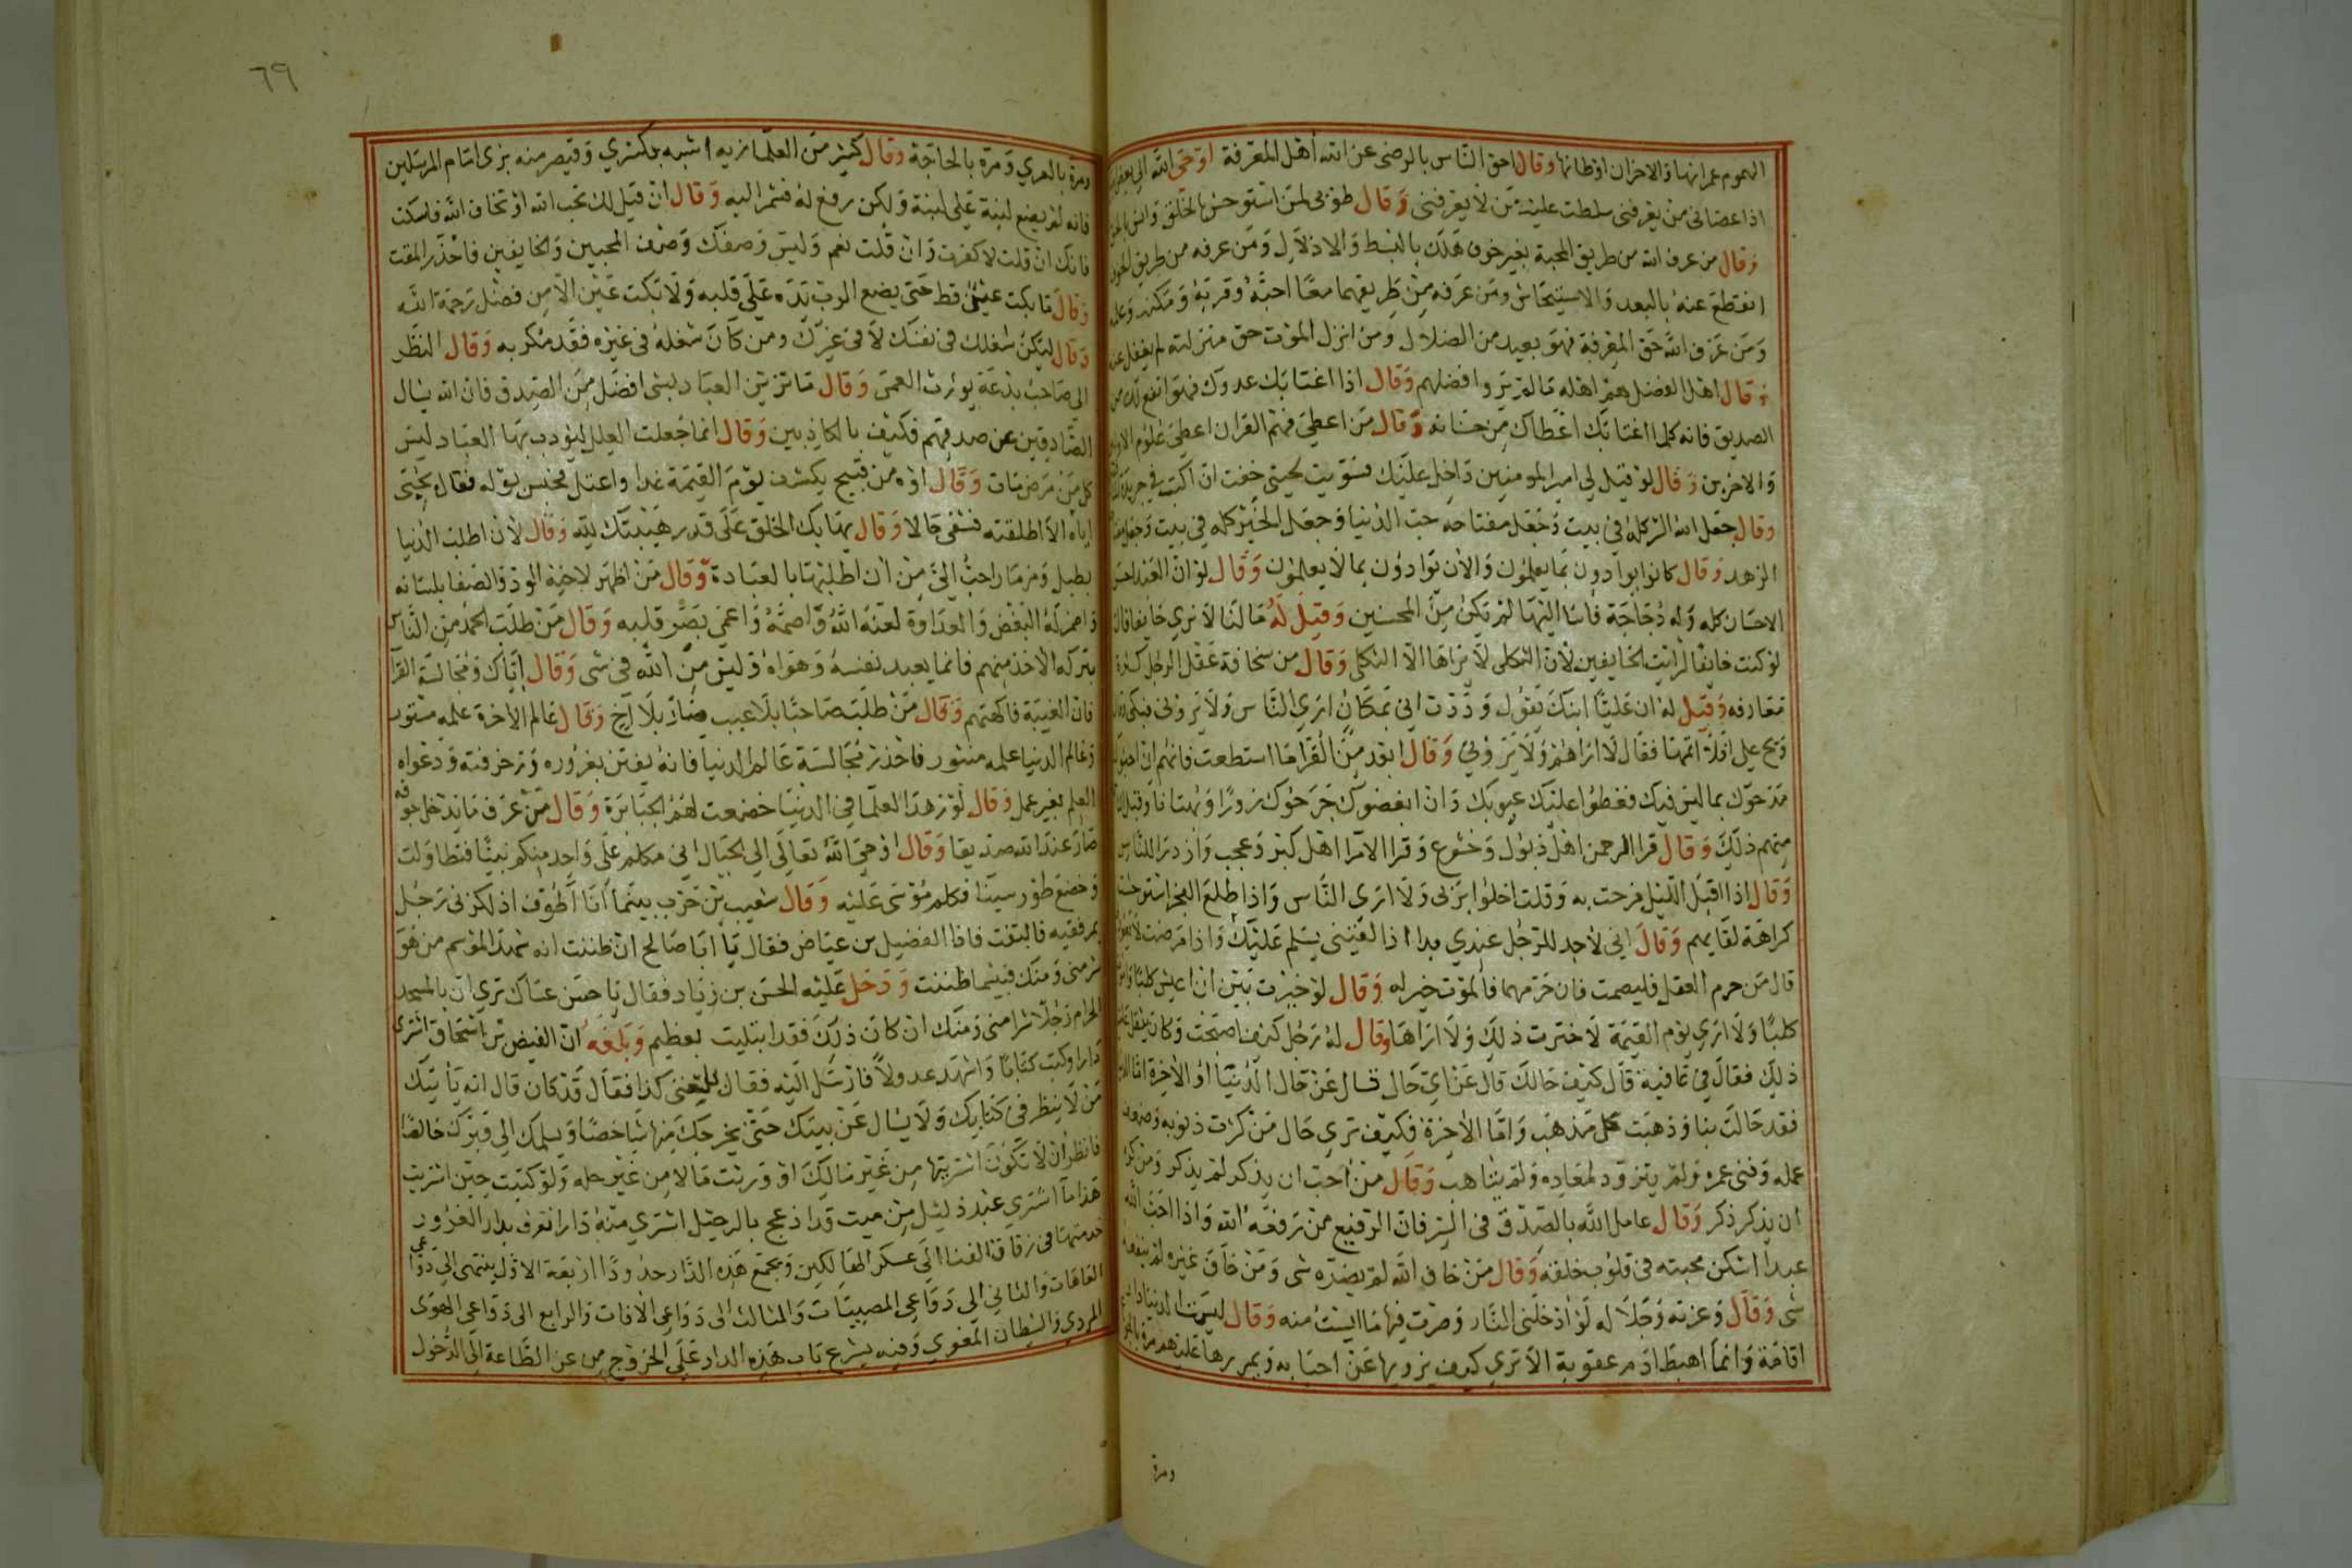 الهموم عمرانها والاحزان اوطانها وقال احق الناس بالرضى عن الله أهل المعرفة اوحى الله الى بعض
اذا عصانى من يعرفنى سلطت عليه من لا يعرفنى وقال طوبى لمن استوحش بالخلق وانس بالحق
وقال من عرف الله من طريق المحبة بغير خوف هلك بالبسط والاذلال ومن عرفه من طريق الخوف
انقطع عنه بالبعد والاستيحاش ومن عرفه من طريقهما معا احبه وقربه ومكنه وعلمه
ومن عرف الله حق المعرفة فهو بعيد من الضلال ومن انزل الموت حق منزلته لم يغفل عنه
وقال اهل الفضل هم اهله مالم يروا فضلهم وقال اذا اغتابك عدوك فهو انفع لك من
الصديق فانه كلما اغتابك اعطاك من حسناته وقال من اعطى فهم القران اعطى علوم الاولين
والاخرين وقال لو قيل لى امير المومنين داخل عليك فسويت لحيتى خفت ان اكتب في جريدة
وقال جعل الله الشر كله في بيت وجعل مفتاحه حب الدنيا وجعل الخير كله في بيت وجعل مفتاحه
الزهد وقال كانوا يوادون بما يعلمون والان توادون بما لا يعلمون وقال لو ان العبد احسن
الاحسان كله وله دجاجة فاسا اليها لم يكن من المحسنين وقيل له مالنا لا نري خايفا قال
لو كنت خايفا لرايت الخايفين لأن الثكلى لا يراها الا الثكلى وقال من سخافة عقل الرجل كثرة
معارفه وقيل له ان عليا ابنك يقول وددت انى بمكان اري الناس ولا يرونى فبكى وقال
ويح علي افلا اتمها فقال لا اراهم ولا يرونى وقال ابعد من القرا ما استطعت فانهم ان احبوك
مدحوك بما ليس فيك فغطوا عليك عيوبك وان ابغضوك جرحوك زورا وبهتانا وقبل
منهم ذلك وقال قرا الرحمن اهل ذبول وخشوع وقرا الامرا اهل كبر وعجب وازدرا للناس
وقال اذا اقبل الليل فرحت به وقلت اخلوا بربى ولا ارى الناس واذا طلع الفجر استوحشت
كراهة لقايهم وقال انى لاجد للرجل عندي يدا اذا لقينى يسلم عليك واذا مرضت لا يعودنى
قال من حرم العقل فليصمت فان حرمهما فالموت خير له وقال لو خيرت بين ان اعيش كلبا واموت
كلبا ولا ارى يوم القيمة لاخترت ذلك ولا اراها وقال له رجل كيف اصبحت وكان يثقل عليه
ذلك فقال في عافية قال كيف حالك قال عن اى حال قال عن حال الدنيا او الاخرة اما الدنيا
فقد حالت بنا وذهبت كل مذهب واما الاخرة فكيف ترى حال من كثرت ذنوبه وضعف
عمله وفنى عمره ولم يتزود لمعاده ولم يتاهب وقال من احب ان يذكر لم يذكر ومن كره
ان يذكر ذكر وقال عامل الله بالصدق فى السر فان الرفيع من رفعه الله واذا احب الله
عبدا اسكن محبته في قلوب خلقه وقال من خاف الله لم يضره شى ومن خاف غيره لم ينفعه
شى وقال وعزته وجلاله لو ادخلنى النار وصرت فيها ما ايست منه وقال ليست الدنيا دار
اقامة وانما اهبط ادم عقوبة الا تري كيف يزويها عن احبابه ويمررها عليهم مرة بالجوع
ومرة
٦٩
ومرة بالعري ومرة بالحاجة وقال كثير من العلما زيه اشبه بكسري وقيصر منه بزى امام المرسلين
فانه لم يضع لبنة على لبنة ولكن رفع له فشمر اليه وقال ان قيل لك تحب الله او تخاف الله فاسكت
فانك ان قلت لا كفرت وان قلت نعم وليس وصفك وصف المحبين والخايفين فاحذر المقت
وقال ما بكت عين قط حتى يضع الرب يده على قلبه ولا بكت عين الا من فضل رحمة الله
وقال ليكن شغلك فى نفسك لا فى غيرك ومن كان شغله فى غيره فقد مكر به وقال النظر
الى صاحب بدعة يورث العمى وقال ما تزين العباد بشى افضل من الصدق فان الله يسال
الصادقين عن صدقهم فكيف بالكاذبين وقال انما جعلت العلل ليؤدب بها العباد ليس
كل من مرض مات وقال اوه من قبيح يكشف يوم القيمة غدا واعتل محبس بوله فقال بحبي
اياه الا اطلقته فشفي حالا وقال يهابك الخلق على قدر هيبتك لله وقال لان اطلب الدنيا
بطبل ومزمار احب الى من ان اطلبها بالعبادة وقال من اظهر لاخيه الود والصفا بلسانه
واضمر له البغض والعداوة لعنه الله واصمه واعمى بصر قلبه وقال من طلب الحمد من الناس
بتركه الاخذ منهم فانما يعبد نفسه وهواه وليس من الله فى شى وقال اياك ومجالسة القرا
فان الغيبة فاكهتهم وقال من طلب صاحبا بلا عيب صار بلا اخ وقال عالم الاخرة علمه مستور
وعالم الدنيا علمه منشور فاحذر مجالسة عالم الدنيا فانه يفتن بغروره وزخرفته ودعواه
العلم بغير عمل وقال لو زهد العلما في الدنيا خضعت لهم الجبابرة وقال من عرف ما يدخل جوفه
صار عند الله صديقا وقال اوحى الله تعالى الى الجبال انى مكلم على واحد منكم نبيا فتطاولت
وخضع طور سينا فكلم موسى عليه وقال شعيب بن حرب بينما انا اطوف اذ لكزنى رجل
بمرفقيه فالتفت فاذا الفضيل بن عياض فقال يا ابا صالح ان ظننت انه شهد الموسم من هو
شر منى ومنك فبيسما ظننت ودخل عليه الحسن بن زياد فقال يا حسن عساك ترى ان بالمسجد
الحرام رجلا شرا منى ومنك ان كان ذلك فقد ابتليت بعظيم وبلغه ان الفيض بن اسحاق اشترى
دارا وكتب كتابا واشهد عدولا فارسل اليه فقال بلغنى كذا فقال قد كان قال انه يأتيك
من لا ينظر فى كتابك ولا يسال عن بيتك حتى يخرجك منها شاخصا ويسلمك الى قبرك خالصا
فانظر ان لا تكون اشتريتها من غير مالك او ورثت مالا من غير حله ولو كتبت حين اشتريت
هذا ما اشترى عبد ذليل من ميت قد ازعج بالرحيل اشترى منه دارا تعرف بدار الغرور
حد منها فى زقاق الفنا الى عسكر الهالكين ويجمع هذه الدار حدودا اربعة الاول ينتهى الى دواعى
العاهات والثانى الى دواعى المصيبات والثالث الى دواعى الافات والرابع الى دواعى الهوى
المردى والشيطان المغوى وفيه يشرع باب هذه الدار على الخروج من عز الطاعة الى الدخول